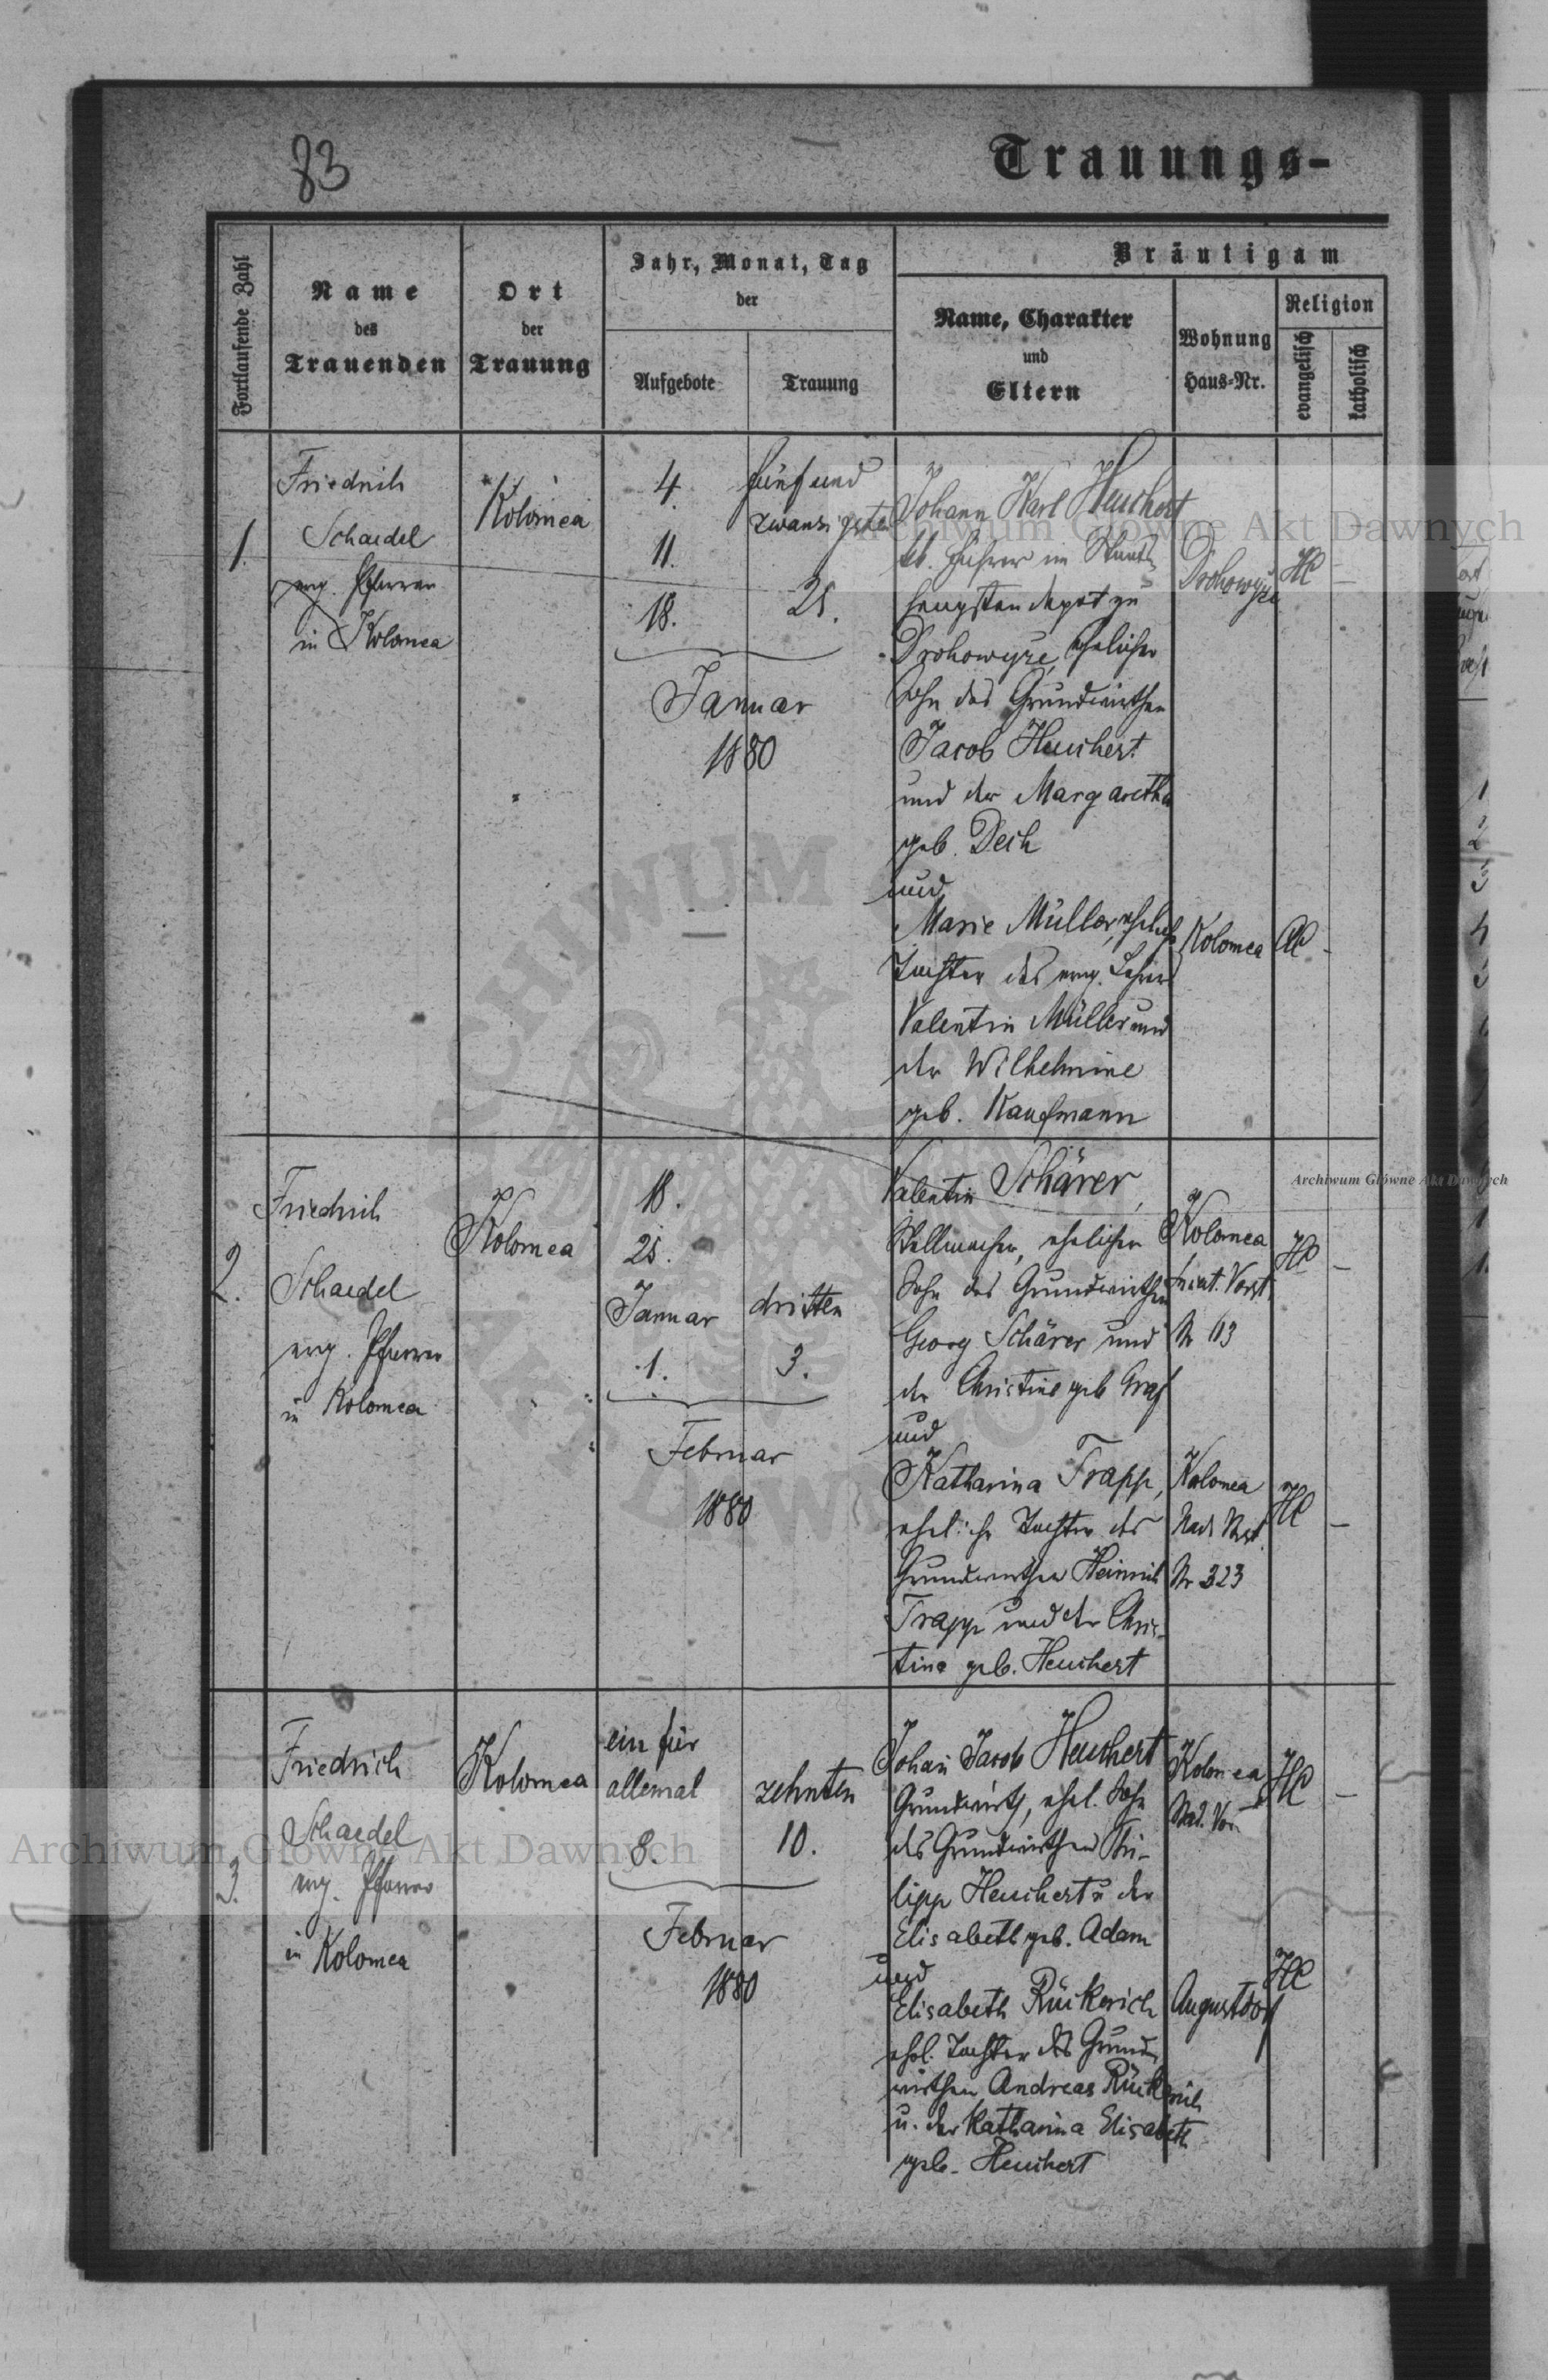 83
Trauungs-
Fortlaufende Zahl
Name
des
Trauenden
Ort
der
Trauung
Jahr, Monat, Tag
der
Aufgebote
Trauung
Bräutigam
Name, Charakter
und
Eltern
Wohnung
Haus-Nr.
Religion
evangelisch
katholisch
1.
Friedrich
Schaedel
evg. Pfarrer
in Kolomea
Kolomea
4.
11.
18.
fünf und
zwanzigsten
25.
Januar
1880
Johann Karl Heuchert
Führer im Staats-
hengstendepot zu
Drohowyze, ehelicher
Sohn des Grundwirthen
Jacob Heuchert
und der Margaretha
geb. Dech
und
Marie Müller, eheliche
Tochter des evg. Lehrers
Valentin Müller und
der Wilhelmine
geb. Kaufmann
Drohowyze
HC
–
Kolomea
AC
-
2.
Friedrich
Schaedel
evg. Pfarrer
in Kolomea
Kolomea
18.
25.
Januar
1.
dritten
3.
Februar
1880
Valentin Schärer,
Stellmacher, ehelicher
Sohn des Grundwirthen
Georg Schärer und
der Christine geb Graf
und
Katharina Trapp,
eheliche Tochter des
Grundwirthen Heinrich
Trapp und der Chris-
tine geb. Heuchert
Kolomea
Vorst.
Nr 113
HC
–
Kolomea
Nad. Vorst.
Nr 323
HC
–
3.
Friedrich
Schaedel
evg. Pfarrer
in Kolomea
Kolomea
ein für
allemal
8.
zehnten
10.
Februar
1880
Johann Jacob Heuchert
Grundwirth, ehel. Sohn
des Grundwirthen Phi-
lipp Heuchert u der
Elisabeth geb. Adam
und
Elisabeth Rückerich
ehel. Tochter des Grund-
wirthen Andreas Rückerich
u. der Katharina Elisabeth
geb. Heuchert
Kolomea
Nad. Vor
HC
–
Augustdorf
HC
Archiwum Główne Akt Dawnych
Archiwum Główne Akt Dawnych
Archiwum Główne Akt Dawnych